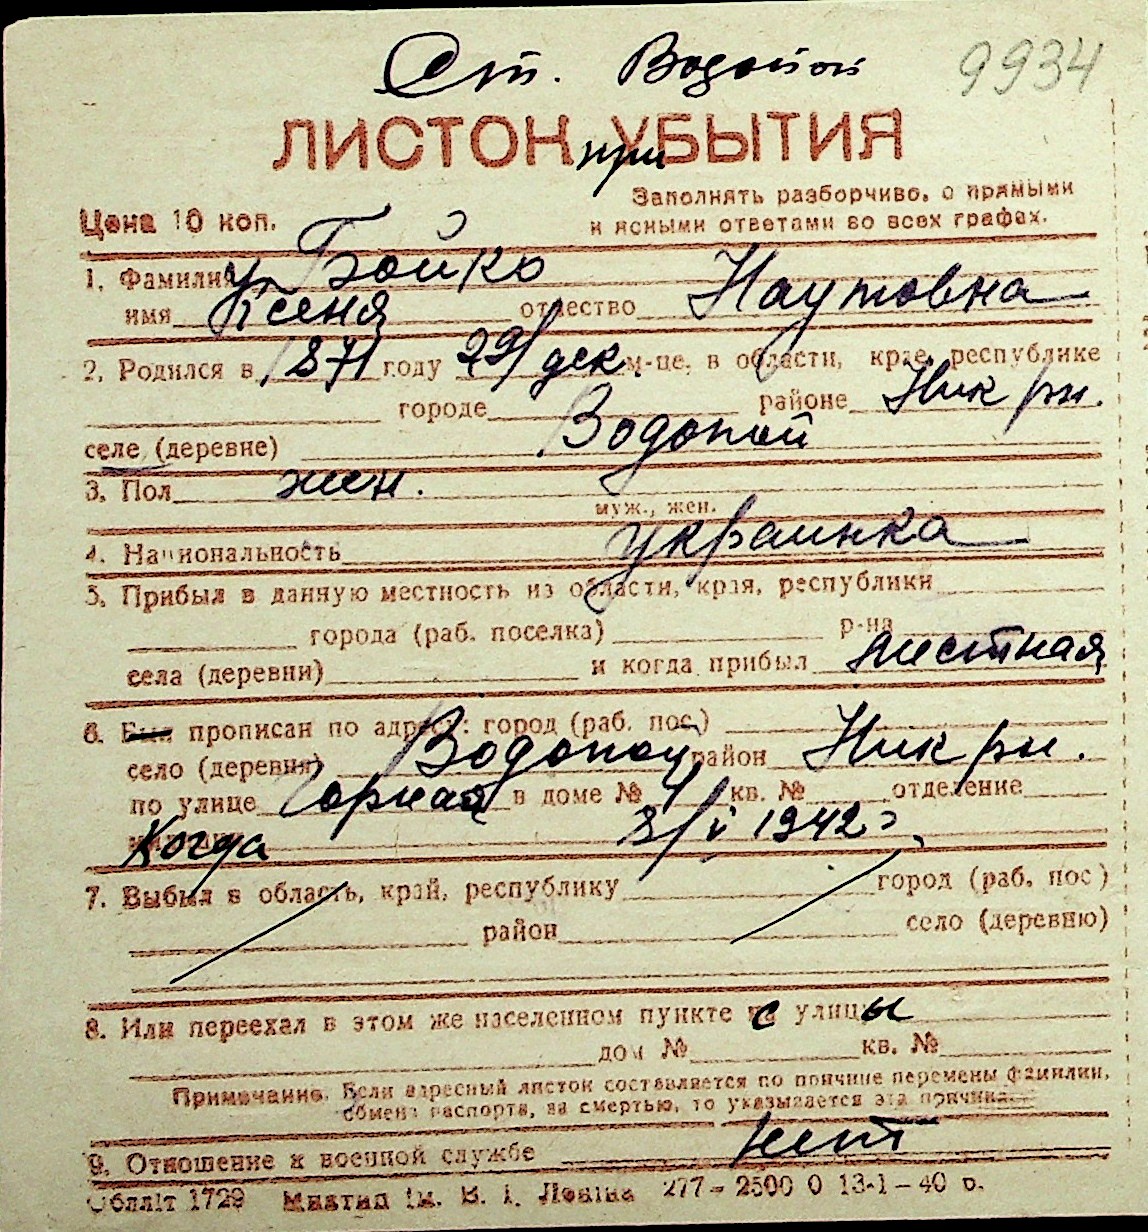 Ст. Водопой 9934
ЛИСТОК УБЫТИЯ
при
Заполнять разборчиво, с прямыми
Цена 10 коп. и ясными ответами во всех графах.
1. Фамилия Бойко
имя Ксеня отчество Наумовна
2. Родился в 1871 году 29/дек. м-це, в области, крае, республике
городе районе Ник рн.
селе (деревне) Водопой
3. Пол жен.
муж., жен.
4. Национальность украинка
5. Прибыл в данную местность из области, края, республики
города (раб. поселка) р-на
села (деревни) и когда прибыл местная
6. Был прописан по адресу: город (раб. пос.)
село (деревня) Водопой район Ник рн.
по улице Горная в доме № кв. № отделение
Когда 8/V 1942 г.
7. Выбыл в область, край, республику город (раб. пос.)
район село (деревню)
8. Или переехал в этом же населенном пункте с улицы
дом № кв. №
Примечание. Если адресный листок составляется по причине перемены фамилии,
обмена паспорта, за смертью, то указывается эта причина.
9. Отношение к военной службе нет
Облліт 1729 Миктип ім. В. І. Леніна 277–2500 0 13-1–40 р.